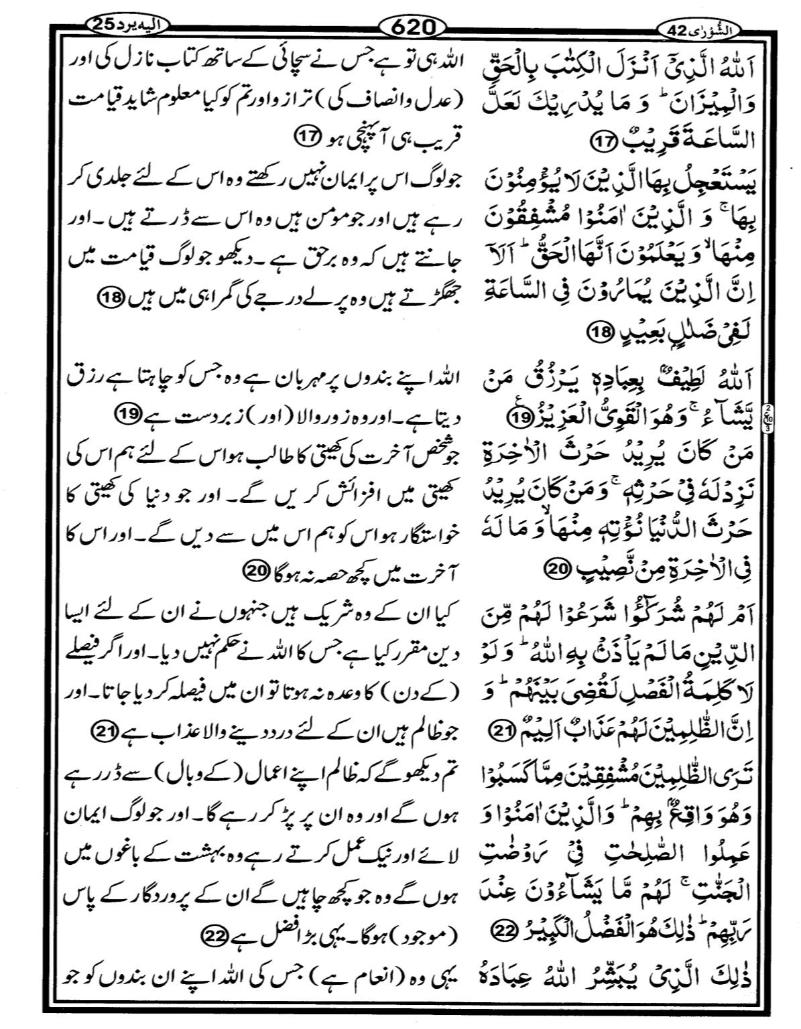 الشُّوْرٰى 42
620
اليه يرد 25
اَللّٰهُ الَّذِىْۤ اَنْزَلَ الْكِتٰبَ بِالْحَقِّ
وَالْمِيْزَانَ ؕ وَ مَا يُدْرِيْكَ لَعَلَّ
السَّاعَةَ قَرِيْبٌ 17
يَسْتَعْجِلُ بِهَا الَّذِيْنَ لَا يُؤْمِنُوْنَ
بِهَا ۚ وَ الَّذِيْنَ اٰمَنُوْا مُشْفِقُوْنَ
مِنْهَا ۙ وَ يَعْلَمُوْنَ اَنَّهَا الْحَقُّ ؕ اَلَاۤ
اِنَّ الَّذِيْنَ يُمَارُوْنَ فِى السَّاعَةِ
لَفِىْ ضَلٰلٍۢ بَعِيْدٍ 18
اَللّٰهُ لَطِيْفٌۢ بِعِبَادِهٖ يَرْزُقُ مَنْ
يَّشَآءُ ۚ وَهُوَ الْقَوِىُّ الْعَزِيْزُ 19
مَنْ كَانَ يُرِيْدُ حَرْثَ الْاٰخِرَةِ
نَزِدْ لَهٗ فِىْ حَرْثِهٖ ۚ وَمَنْ كَانَ يُرِيْدُ
حَرْثَ الدُّنْيَا نُؤْتِهٖ مِنْهَا ۙ وَ مَا لَهٗ
فِى الْاٰخِرَةِ مِنْ نَّصِيْبٍ 20
اَمْ لَهُمْ شُرَكٰٓؤُا شَرَعُوْا لَهُمْ مِّنَ
الدِّيْنِ مَا لَمْ يَاْذَنْۢ بِهِ اللّٰهُ ؕ وَ لَوْ
لَا كَلِمَةُ الْفَصْلِ لَقُضِىَ بَيْنَهُمْ ؕ وَ
اِنَّ الظّٰلِمِيْنَ لَهُمْ عَذَابٌ اَلِيْمٌ 21
تَرَى الظّٰلِمِيْنَ مُشْفِقِيْنَ مِمَّا كَسَبُوْا
وَهُوَ وَاقِعٌۢ بِهِمْ ؕ وَالَّذِيْنَ اٰمَنُوْا وَ
عَمِلُوا الصّٰلِحٰتِ فِىْ رَوْضٰتِ
الْجَنّٰتِ ۚ لَهُمْ مَّا يَشَآءُوْنَ عِنْدَ
رَبِّهِمْ ؕ ذٰلِكَ هُوَ الْفَضْلُ الْكَبِيْرُ 22
ذٰلِكَ الَّذِىْ يُبَشِّرُ اللّٰهُ عِبَادَهُ
اللہ ہی تو ہے جس نے سچائی کے ساتھ کتاب نازل کی اور
(عدل و انصاف کی) ترازو اور تم کو کیا معلوم شاید قیامت
قریب ہی آ پہنچی ہو 17
جو لوگ اس پر ایمان نہیں رکھتے وہ اس کے لئے جلدی کر
رہے ہیں اور جو مومن ہیں وہ اس سے ڈرتے ہیں۔ اور
جانتے ہیں کہ وہ برحق ہے۔ دیکھو جو لوگ قیامت میں
جھگڑتے ہیں وہ پرلے درجے کی گمراہی میں ہیں 18
اللہ اپنے بندوں پر مہربان ہے وہ جس کو چاہتا ہے رزق
دیتا ہے۔ اور وہ زور والا (اور) زبردست ہے 19
جو شخص آخرت کی کھیتی کا طالب ہو اس کے لئے ہم اس کی
کھیتی میں افزائش کریں گے۔ اور جو دنیا کی کھیتی کا
خواستگار ہو اس کو ہم اس میں سے دیں گے۔ اور اس کا
آخرت میں کچھ حصہ نہ ہوگا 20
کیا ان کے وہ شریک ہیں جنہوں نے ان کے لئے ایسا
دین مقرر کیا ہے جس کا اللہ نے حکم نہیں دیا۔ اور اگر فیصلے
(کے دن) کا وعدہ نہ ہوتا تو ان میں فیصلہ کر دیا جاتا۔ اور
جو ظالم ہیں ان کے لئے درد دینے والا عذاب ہے 21
تم دیکھو گے کہ ظالم اپنے اعمال (کے وبال) سے ڈر رہے
ہوں گے اور وہ ان پر پڑ کر رہے گا۔ اور جو لوگ ایمان
لائے اور نیک عمل کرتے رہے وہ بہشت کے باغوں میں
ہوں گے وہ جو کچھ چاہیں گے ان کے پروردگار کے پاس
(موجود) ہوگا۔ یہی بڑا فضل ہے 22
یہی وہ (انعام ہے) جس کی اللہ اپنے ان بندوں کو جو